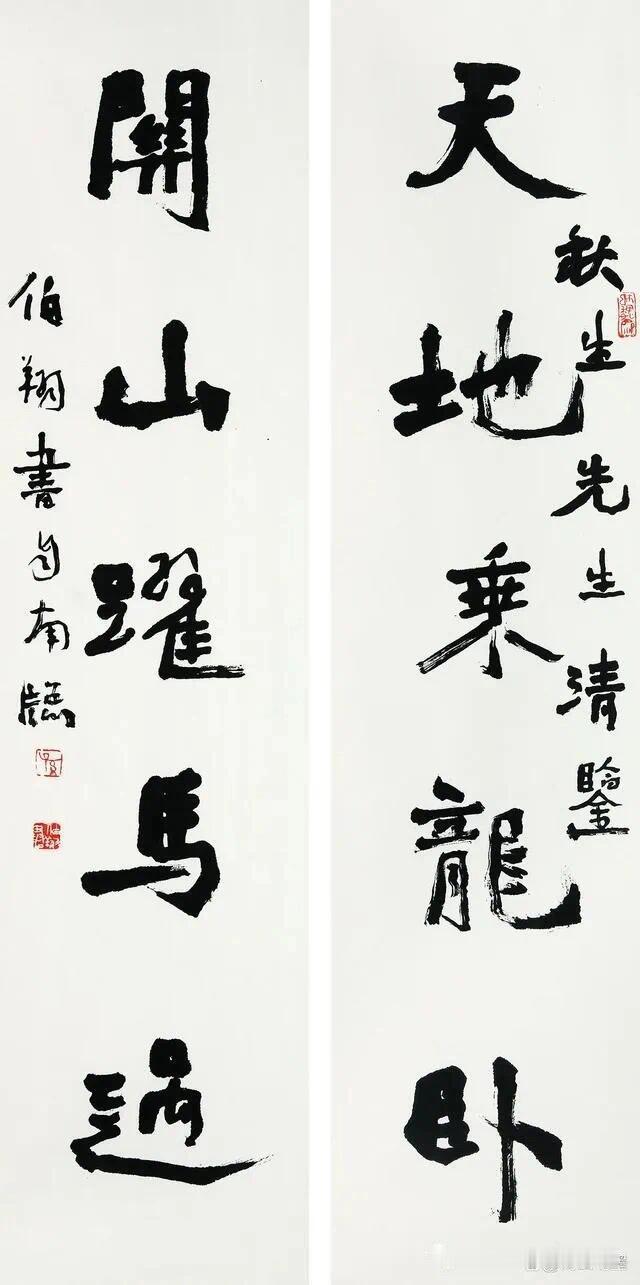 秋生先生清鑒
天地乘龍卧
關山躍馬過
伯翔書自南